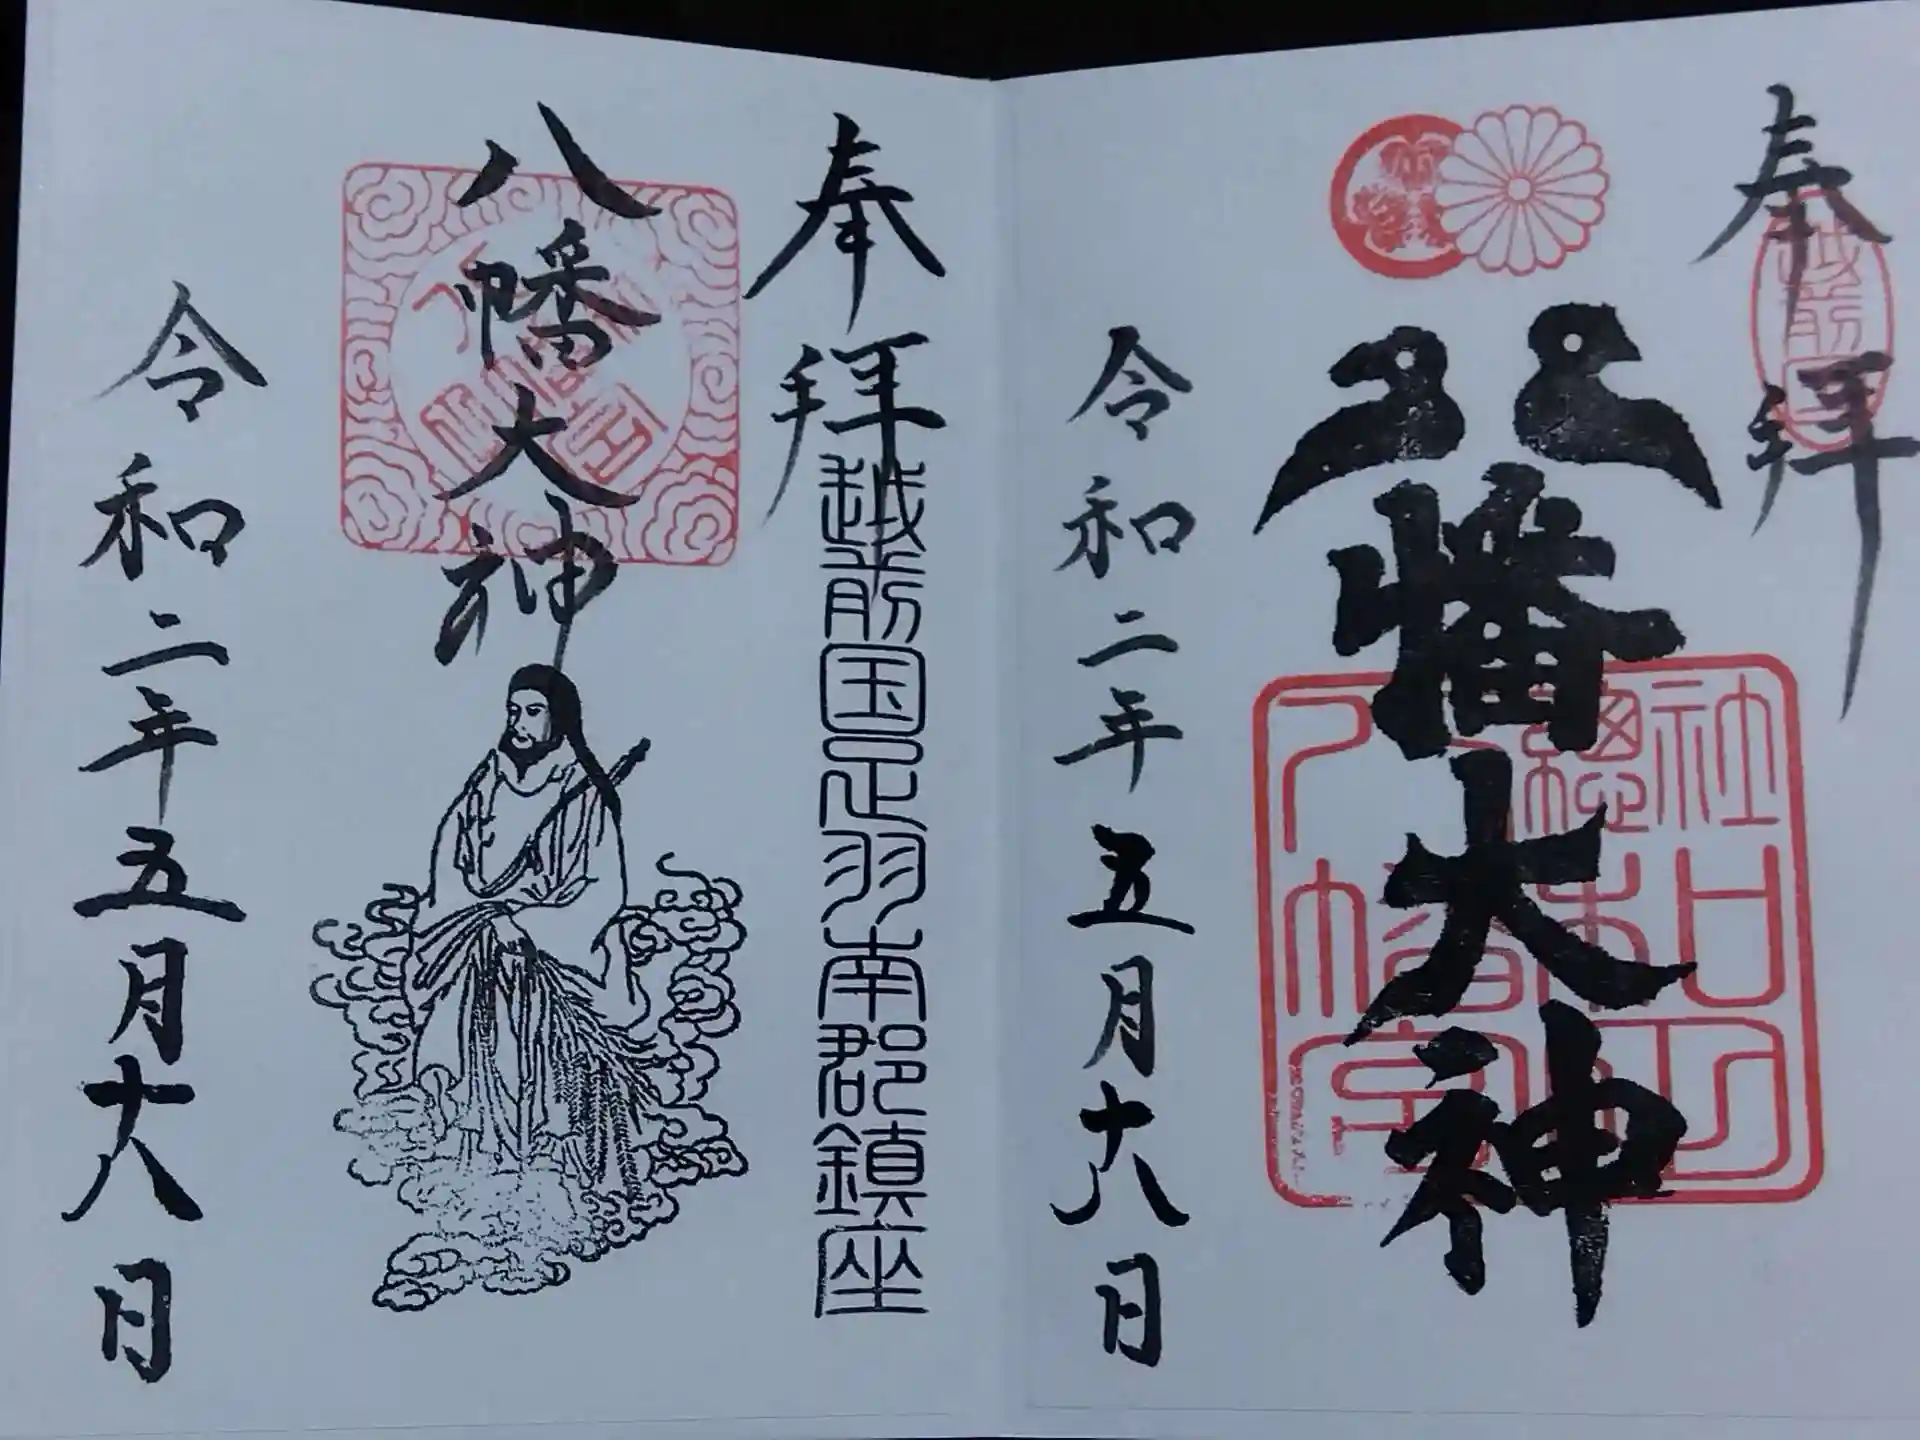 奉拝
越前国
八幡大神
八幡宮
令和二年五月十八日
奉拝
越前国足羽南郡鎮座
八幡大神
令和二年五月十八日